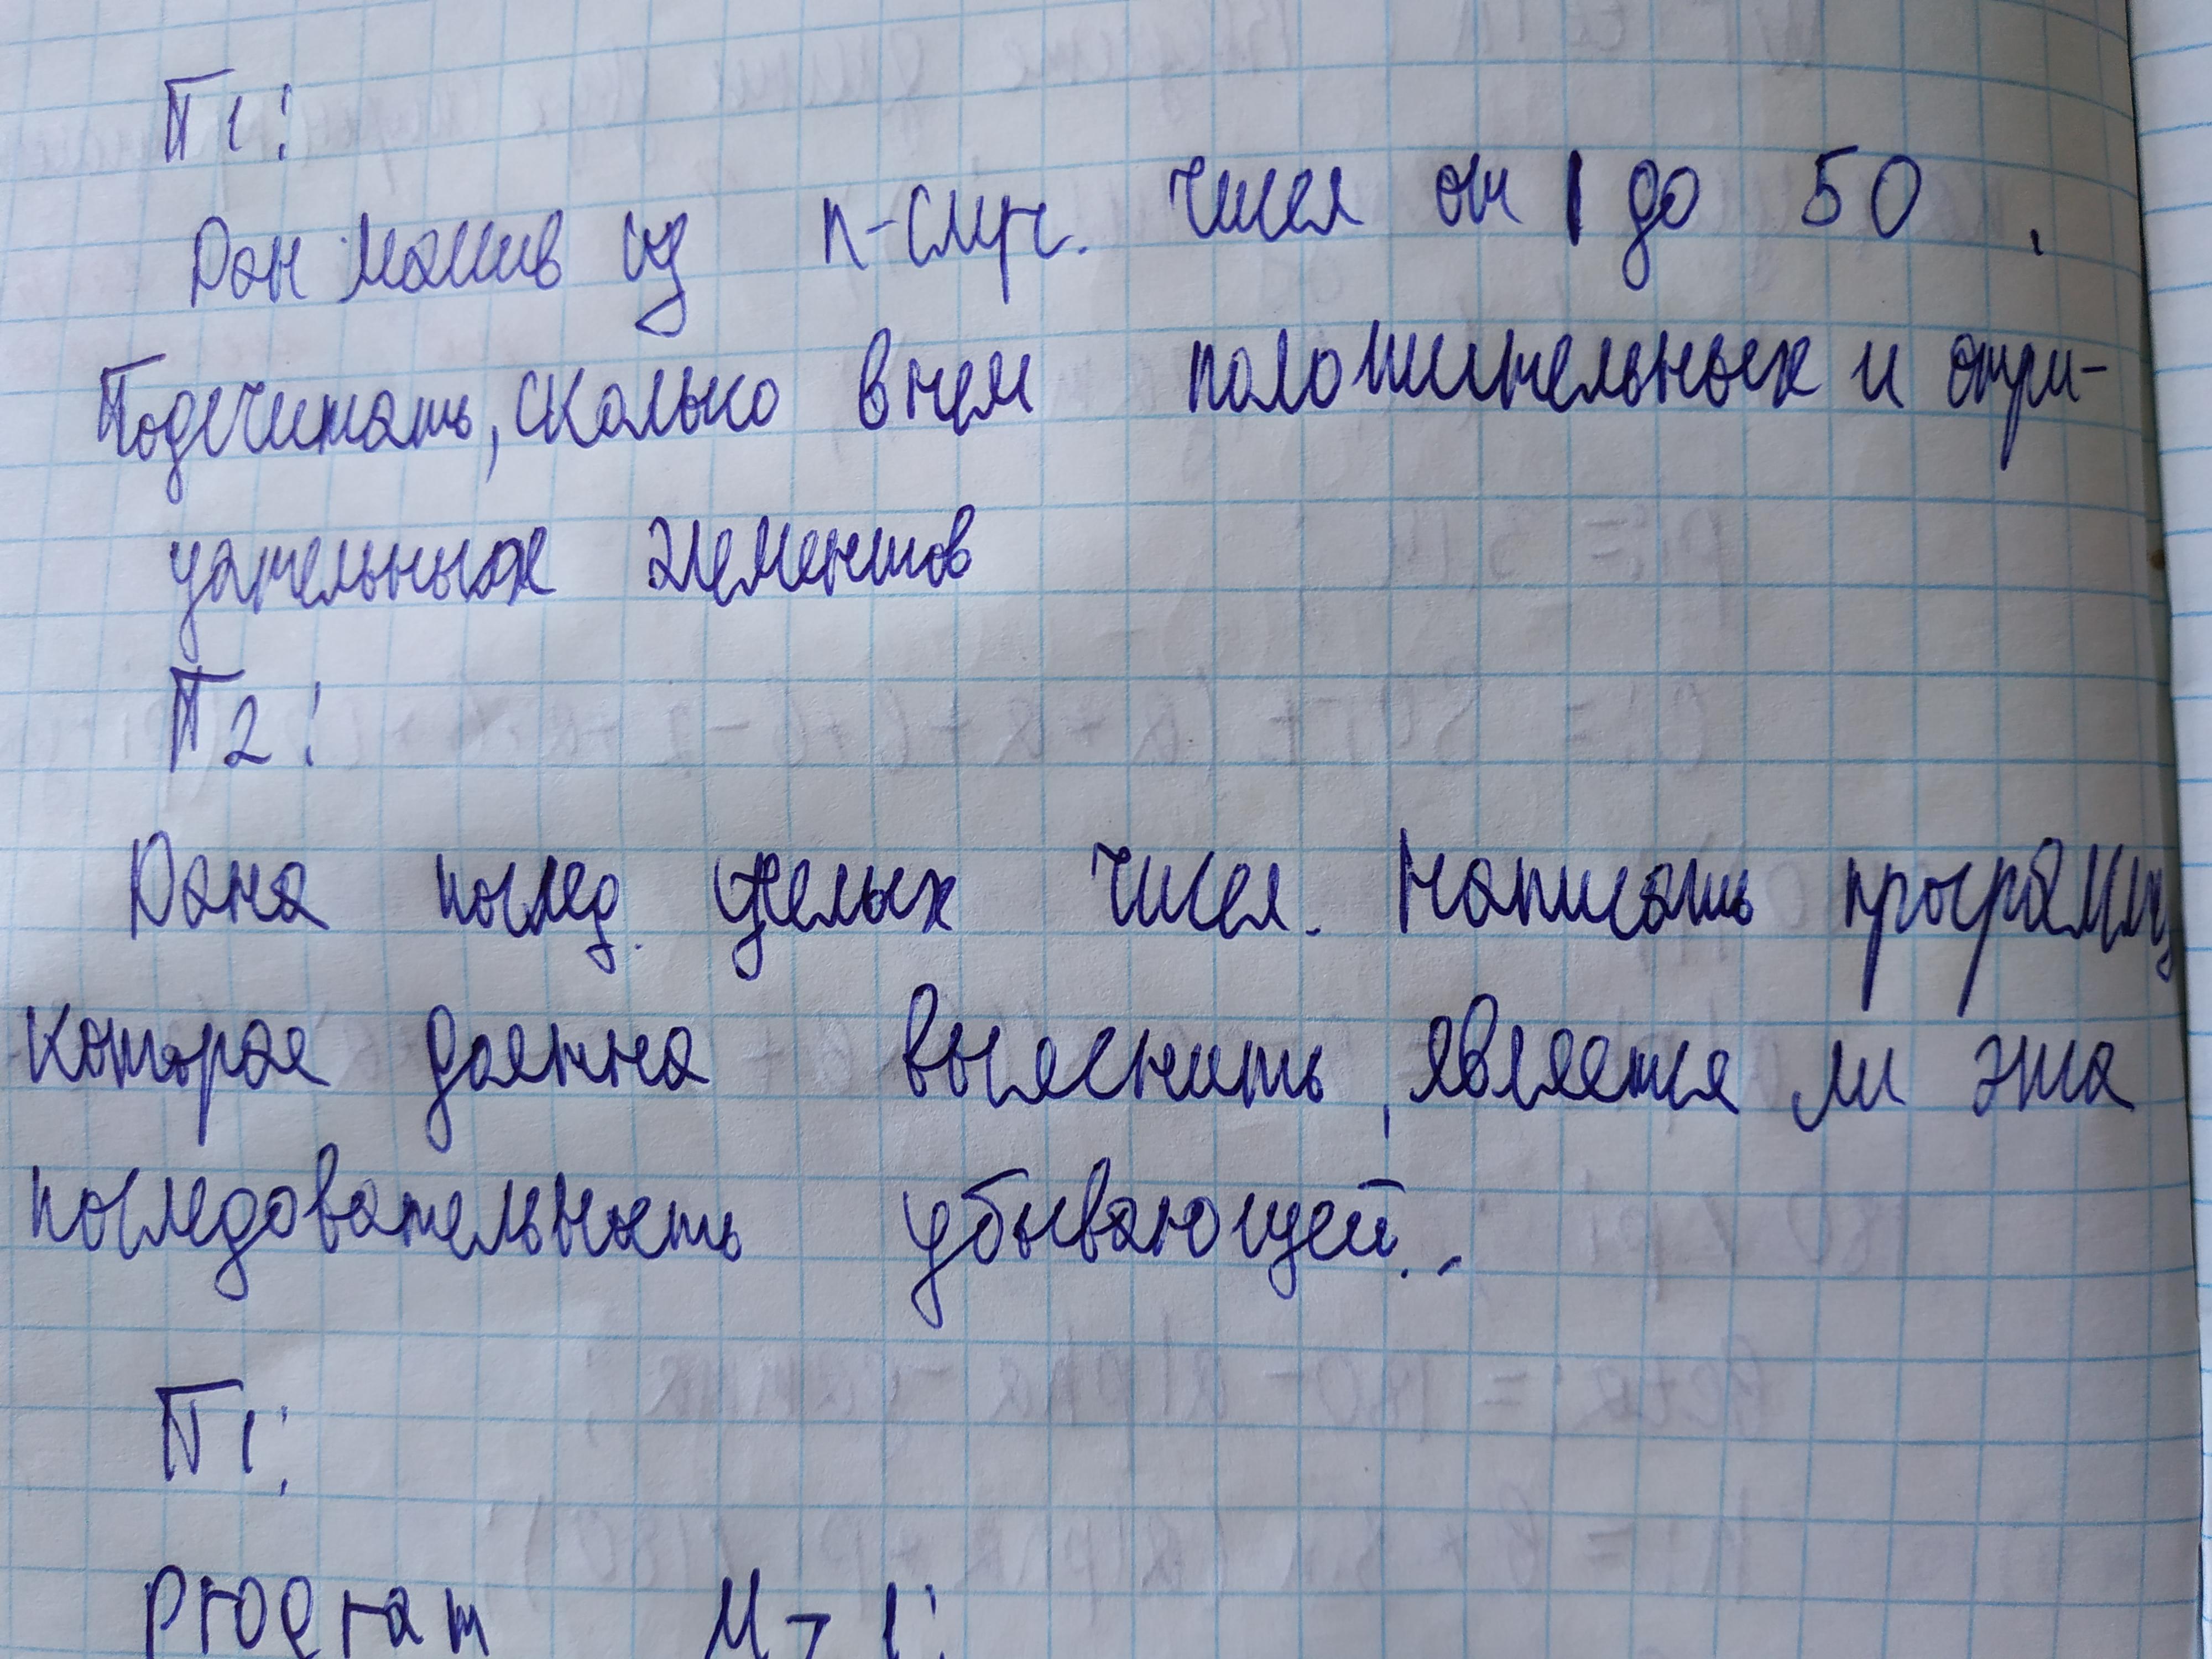 П1:
Дан массив из n-случ. чисел от 1 до 50.
Подсчитать, сколько в нем положительных и отри-
цательных элементов
П2:
Дана послед. целых чисел. Написать программу
которая должна выяснить, является ли эта
последовательность убывающей.
П1:
program